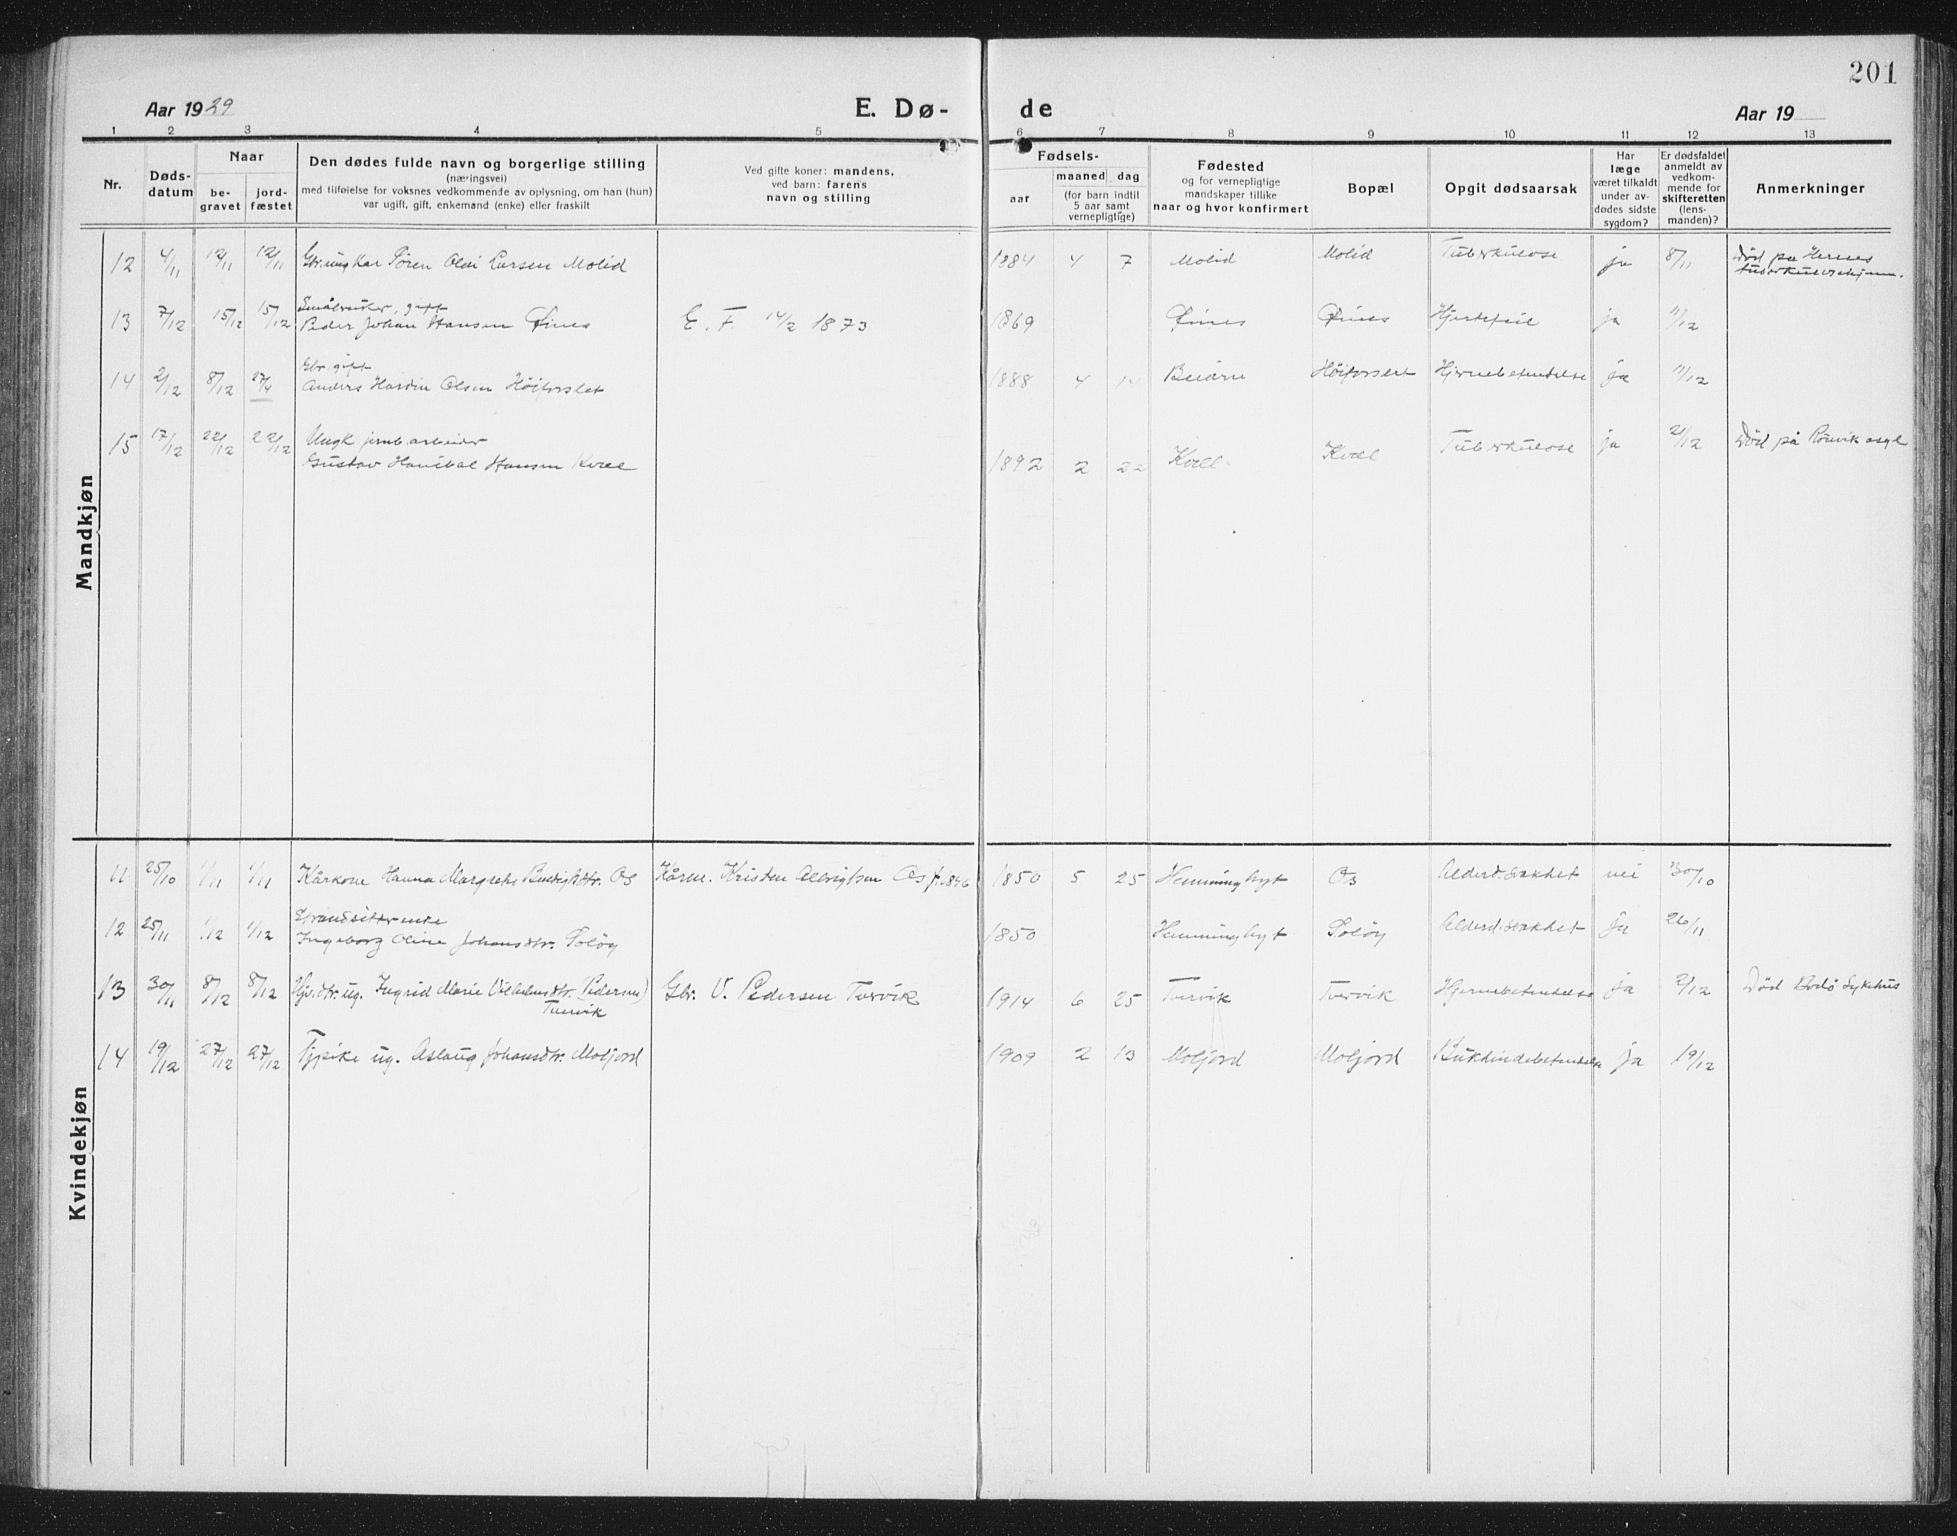 201
Aar 1929
E. Dø-
de
Aar 19
1 2 3 4 5 6 7 8 9 10 11 12 13
Nr.
Døds-
datum
Naar
be-
gravet
jord-
fæstet
Den dødes fulde navn og borgerlige stilling
(næringsvei)
med tilføielse for voksnes vedkommende av oplysning, om han (hun)
var ugift, gift, enkemand (enke) eller fraskilt
Ved gifte koner: mandens,
ved barn: farens
navn og stilling
Fødsels-
aar
maaned dag
(for barn indtil
5 aar samt
vernepligtige)
Fødested
og for vernepligtige
mandskaper tillike
naar og hvor konfirmert
Bopæl
Opgit dødsaarsak
Har
læge
været tilkaldt
under av-
dødes sidste
sygdom?
Er dødsfaldet
anmeldt av
vedkom-
mende for
skifteretten
(lens-
manden)?
Anmerkninger
Mandkjøn
12 4/11 12/11 12/11 Gbr. ungkar Søren Olai Larsen Molid 1884 4 7 Molid Molid Tuberkulose ja 8/11 Død på Hernes
tuberkulosehjem.
Småbruker, gift
13 7/12 15/12 15/12 Peder Johan Hansen Øines E. F. 14/2 1873 1869 Øines Øines Hjertefeil ja 11/12
Gbr. gift
14 2/12 8/12 27/4 Anders Hardin Olsen Höiforslet 1888 4 Beiarn Höiforslet Hjernebetendelse ja 11/12
Ungk jernb. arbeider
15 17/12 22/12 22/12 Gustav Hanibal Hansen Kvæl 1892 2 22 Kvæl Kvæl Tuberkulose ja 21/12 Død på Rönvik asyl
Kvindekjøn
11 25/10 1/11 1/11 Kårkone Hanna Margrethe Os Kårm. Kristen Albrigtsen Os f. 1846 1850 5 25 Hemminghyt Os Alderd.svakhet nei 30/10
Strandsitterenke
12 25/11 1/12 1/12 Ingeborg Oline Johansdtr. Solöy 1850 Hemminghyt Solöy Alderd.svakhet ja 26/11
13 30/11 8/12 8/12 ug. Ingrid Marie Vilhelmsdtr. (Pedersen) Gbr. V. Pedersen Tvervik 1914 6 25 Tvervik Tvervik Hjernebetendelse ja 2/12 Död Bodö Sykehus
Tvervik
14 19/12 27/12 27/12 Tjpike ug. Aslaug Johansdtr. Moljord 1909 2 13 Moljord Moljord Bukhindebetendelse ja 19/12